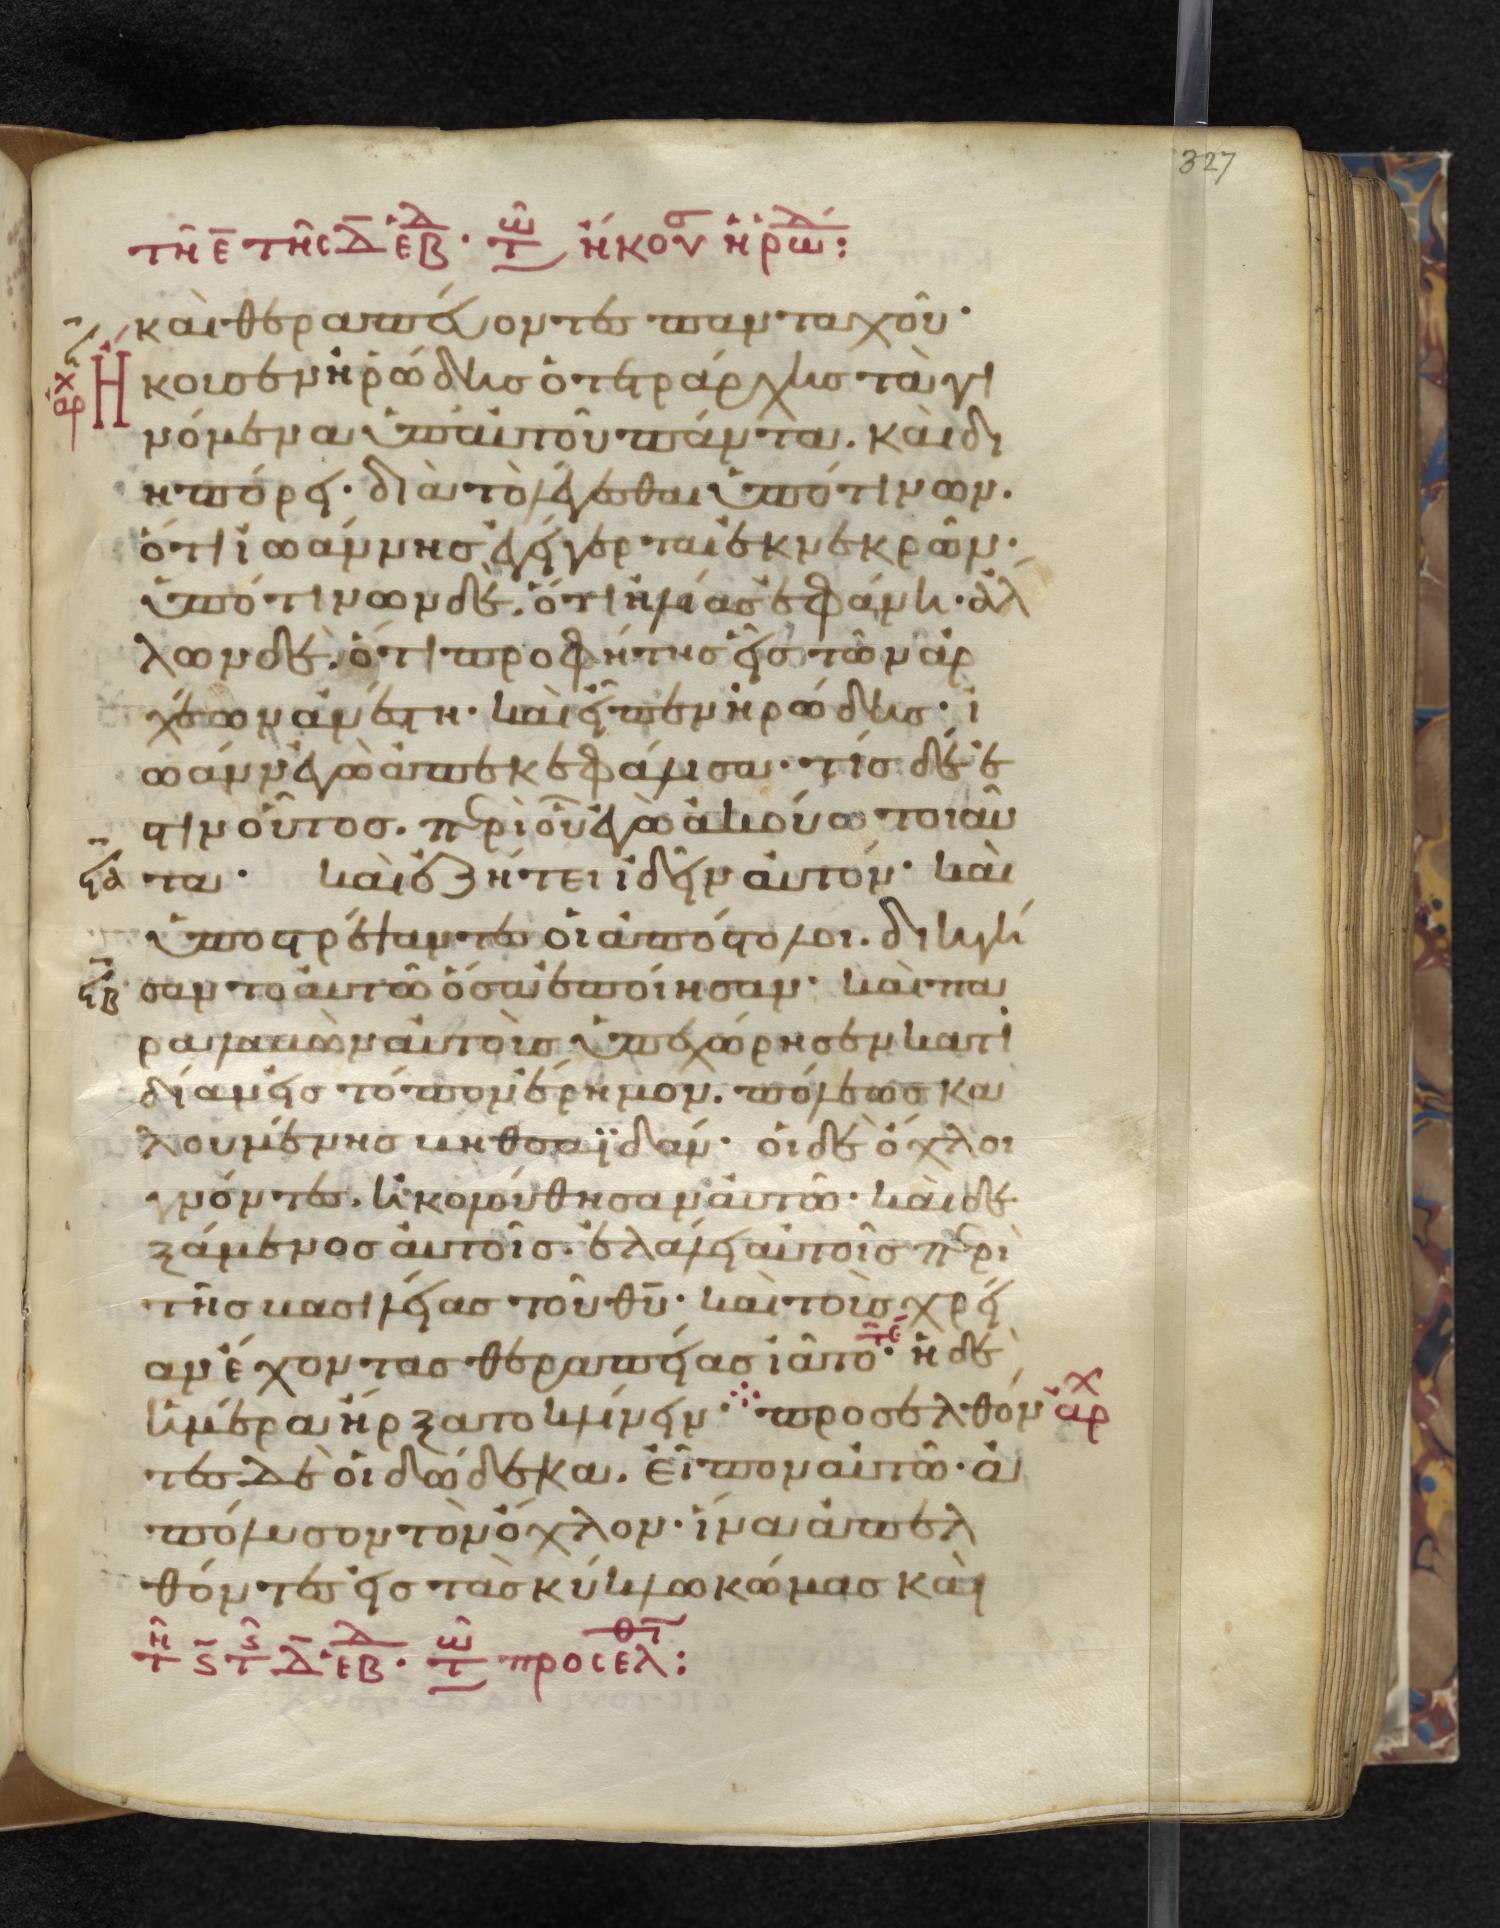 327
τῆ ε̄ τῆς δ̄ ἑβδ · τῶ ἤκουσ ἡρώδ :
καὶ θεραπεύοντες πανταχοῦ ·
Ἤκουσεν ἡρώδης ὁ τετράρχης τὰ γι
ἀρχ
νόμενα ὑπ' αὐτοῦ πάντα . καὶ δι
ηπόρει · διὰ τὸ λέγεσθαι ὑπό τινων .
ὅτι ἰωάννης ἐγήγερται ἐκ νεκρῶν ·
ὑπό τινων δὲ . ὅτι ἠλίας ἐφάνη · ἄλ
λων δὲ . ὅτι προφήτης εἷς τῶν ἀρ
χαίων ἀνέστη · καὶ εἶπεν ἡρώδης · ἰ
ωάννην ἐγὼ ἀπεκεφάλισα · τίς δέ ἐ
στιν οὗτος . περὶ οὗ ἐγὼ ἀκούω τοιαῦ
τα · καὶ ἐζήτει ἰδεῖν αὐτόν · καὶ
ὑποστρέψαντες οἱ ἀπόστολοι . διηγή
σαντο αὐτῶ ὅσα ἐποίησαν · καὶ πα
ραλαβὼν αὐτοὺς ὑπεχώρησεν κατ' ἰ
δίαν εἰς τόπον ἔρημον . πόλεως κα
λουμένης βηθσαϊδάν · οἱ δὲ ὄχλοι
γνόντες . ἠκολούθησαν αὐτῶ · καὶ δε
ξάμενος αὐτοὺς . ἐλάλει αὐτοῖς περὶ
τῆς βασιλείας τοῦ θῡ · καὶ τοὺς χρεί
αν ἔχοντας θεραπείας ἰᾶτο · ἡ δὲ
τε
ἡμέρα ἤρξατο κλίνειν · προσελθόν
ἀρχ
τες δὲ οἱ δώδεκα . εἶπον αὐτῶ · ἀ
πόλυσον τὸν ὄχλον · ἵνα ἀπελ
θόντες εἰς τὰς κύκλω κώμας καὶ
τῆ ϛ̄ τῆς δ̄ ἑβδ · τῶ προσελθτ :